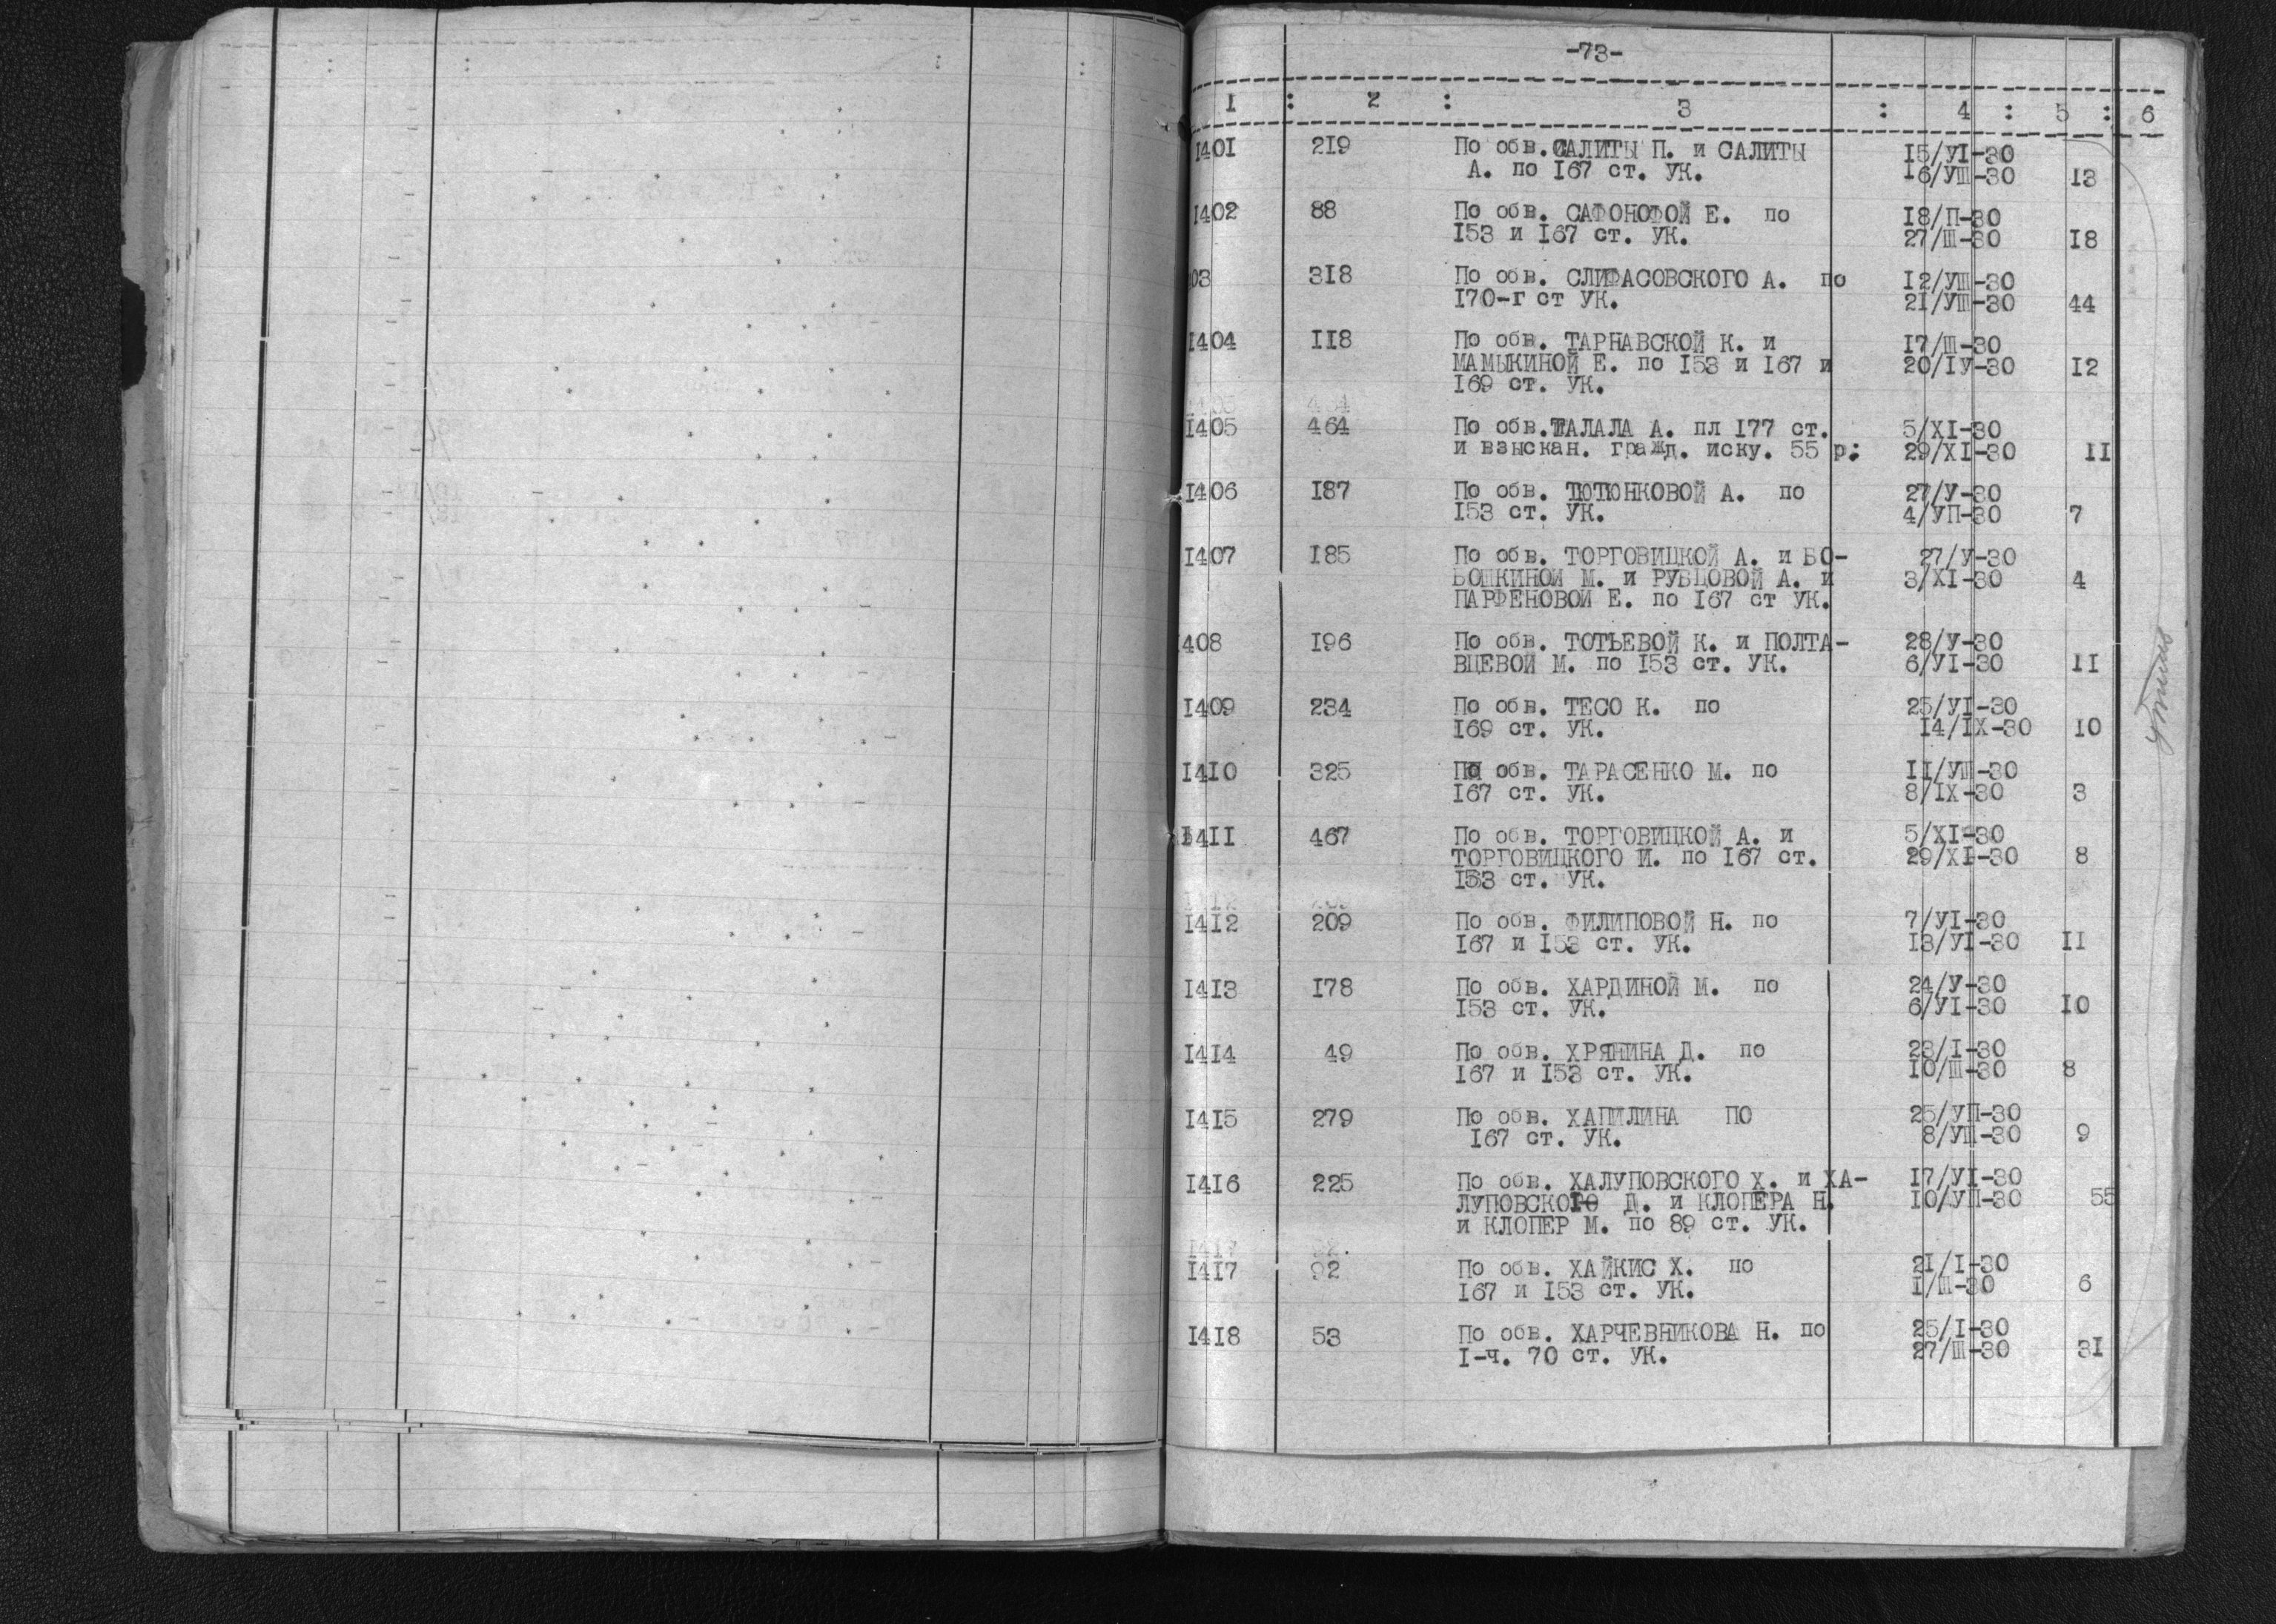 -73-
1 : 2 : 3 : 4 : 5 : 6
1401 219 По обв. САЛИТЫ П. и САЛИТЫ 15/УІ-30
А. по 167 ст. УК. 16/УШ-30 13
1402 88 По обв. САФОНОФОЙ Е. по 18/П-30
153 и 167 ст. УК. 27/Ш-30 18
03 318 По обв. СЛИФАСОВСКОГО А. по 12/УШ-30
170-г ст УК. 21/УШ-30 44
1404 118 По обв. ТАРНАВСКОЙ К. и 17/Ш-30
МАМЫКИНОЙ Е. по 153 и 167 и 20/ІУ-30 12
169 ст. УК.
1405 464 По обв. ТАЛАЛА А. пл 177 ст. 5/ХІ-30
и взыскан. гражд. иску. 55 р: 29/ХІ-30 11
1406 187 По обв. ТЮТЮНКОВОЙ А. по 27/У-30
153 ст. УК. 4/УП-30 7
1407 185 По обв. ТОРГОВИЦКОЙ А. и БО- 27/У-30
БОШКИНОЙ М. и РУБЦОВОЙ А. и 3/ХІ-30 4
ПАРФЕНОВОЙ Е. по 167 ст УК.
408 196 По обв. ТОТЬЕВОЙ К. и ПОЛТА- 28/У-30
ВЦЕВОЙ М. по 153 ст. УК. 6/УІ-30 11
1409 234 По обв. ТЕСО К. по 25/УІ-30
169 ст. УК. 14/ІХ-30 10
1410 325 По обв. ТАРАСЕНКО М. по 11/УШ-30
167 ст. УК. 8/ІХ-30 3
1411 467 По обв. ТОРГОВИЦКОЙ А. и 5/ХІ-30
ТОРГОВИЦКОГО И. по 167 ст. 29/ХІ-30 8
153 ст. УК.
1412 209 По обв. ФИЛИПОВОЙ Н. по 7/УІ-30
167 и 153 ст. УК. 13/УІ-30 11
1413 178 По обв. ХАРДИНОЙ М. по 24/У-30
153 ст. УК. 6/УІ-30 10
1414 49 По обв. ХРЯНИНА Д. по 23/І-30
167 и 153 ст. УК. 10/Ш-30 8
1415 279 По обв. ХАПИЛИНА ПО 25/УП-30
167 ст. УК. 8/УШ-30 9
1416 225 По обв. ХАЛУПОВСКОГО Х. и ХА- 17/УІ-30
ЛУПОВСКОГО Д. и КЛОПЕРА Н. 10/УП-30 55
и КЛОПЕР М. по 89 ст. УК.
1417 92 По обв. ХАЙКИС Х. по 21/І-30
167 и 153 ст. УК. 1/Ш-30 6
1418 53 По обв. ХАРЧЕВНИКОВА Н. по 25/І-30
1-ч. 70 ст. УК. 27/Ш-30 31